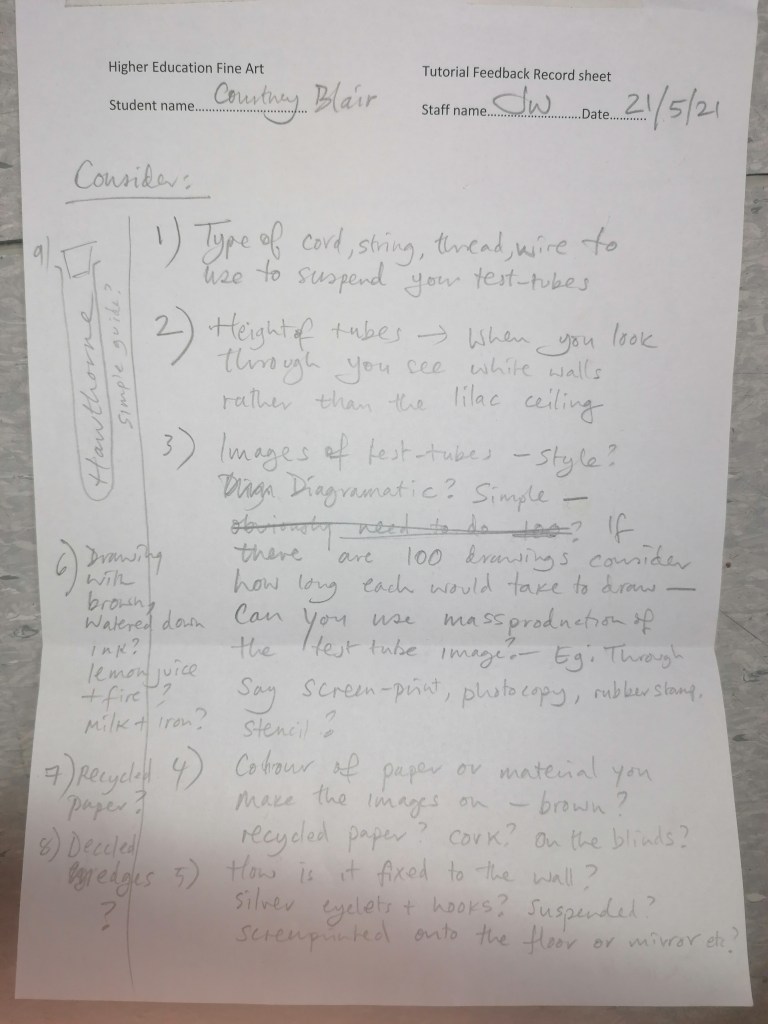 Higher Education Fine Art
Tutorial Feedback Record sheet
Student name.............Courtney Blair
Staff name.............JW.............Date..........21/5/21
Consider:
1) Type of cord, string, thread, wire to
use to suspend your test-tubes
2) Height of tubes → When you look
through you see white walls
rather than the lilac ceiling
3) Images of test-tubes – style?
Diagramatic? Simple –
obviously need to do 100? If
there are 100 drawings consider
how long each would take to draw –
Can you use mass production of
the test tube image? – Eg: Through
say screen-print, photocopy, rubber stamp,
stencil?
4) Colour of paper or material you
make the images on – brown?
recycled paper? cork? On the blinds?
5) How is it fixed to the wall?
silver eyelets + hooks? suspended?
screenprinted onto the floor or mirror etc?
6) Drawing
with
brown,
watered down
ink?
lemon juice
+ fire?
milk + iron?
7) Recycled
paper?
8) Deckled
edges
?
9)
Hawthorne
simple guide?